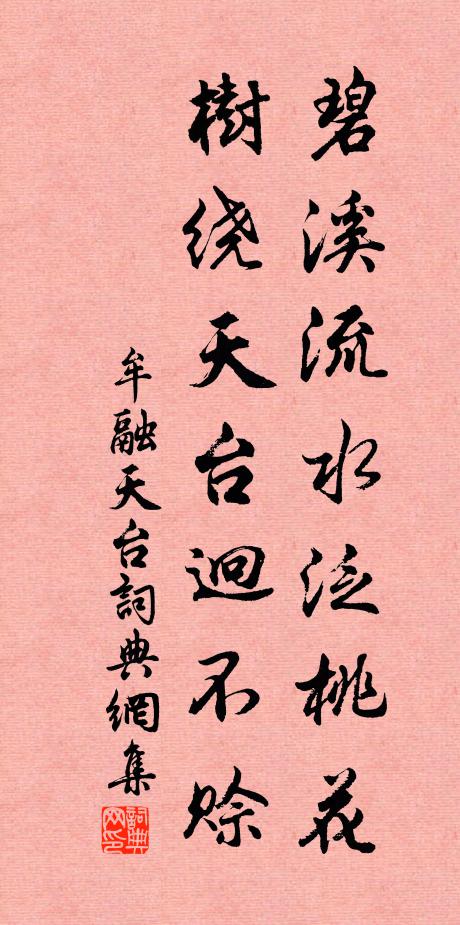 碧溪流水泛桃花
樹绕天台迥不赊
牟融天台詞典網集
詞典网印